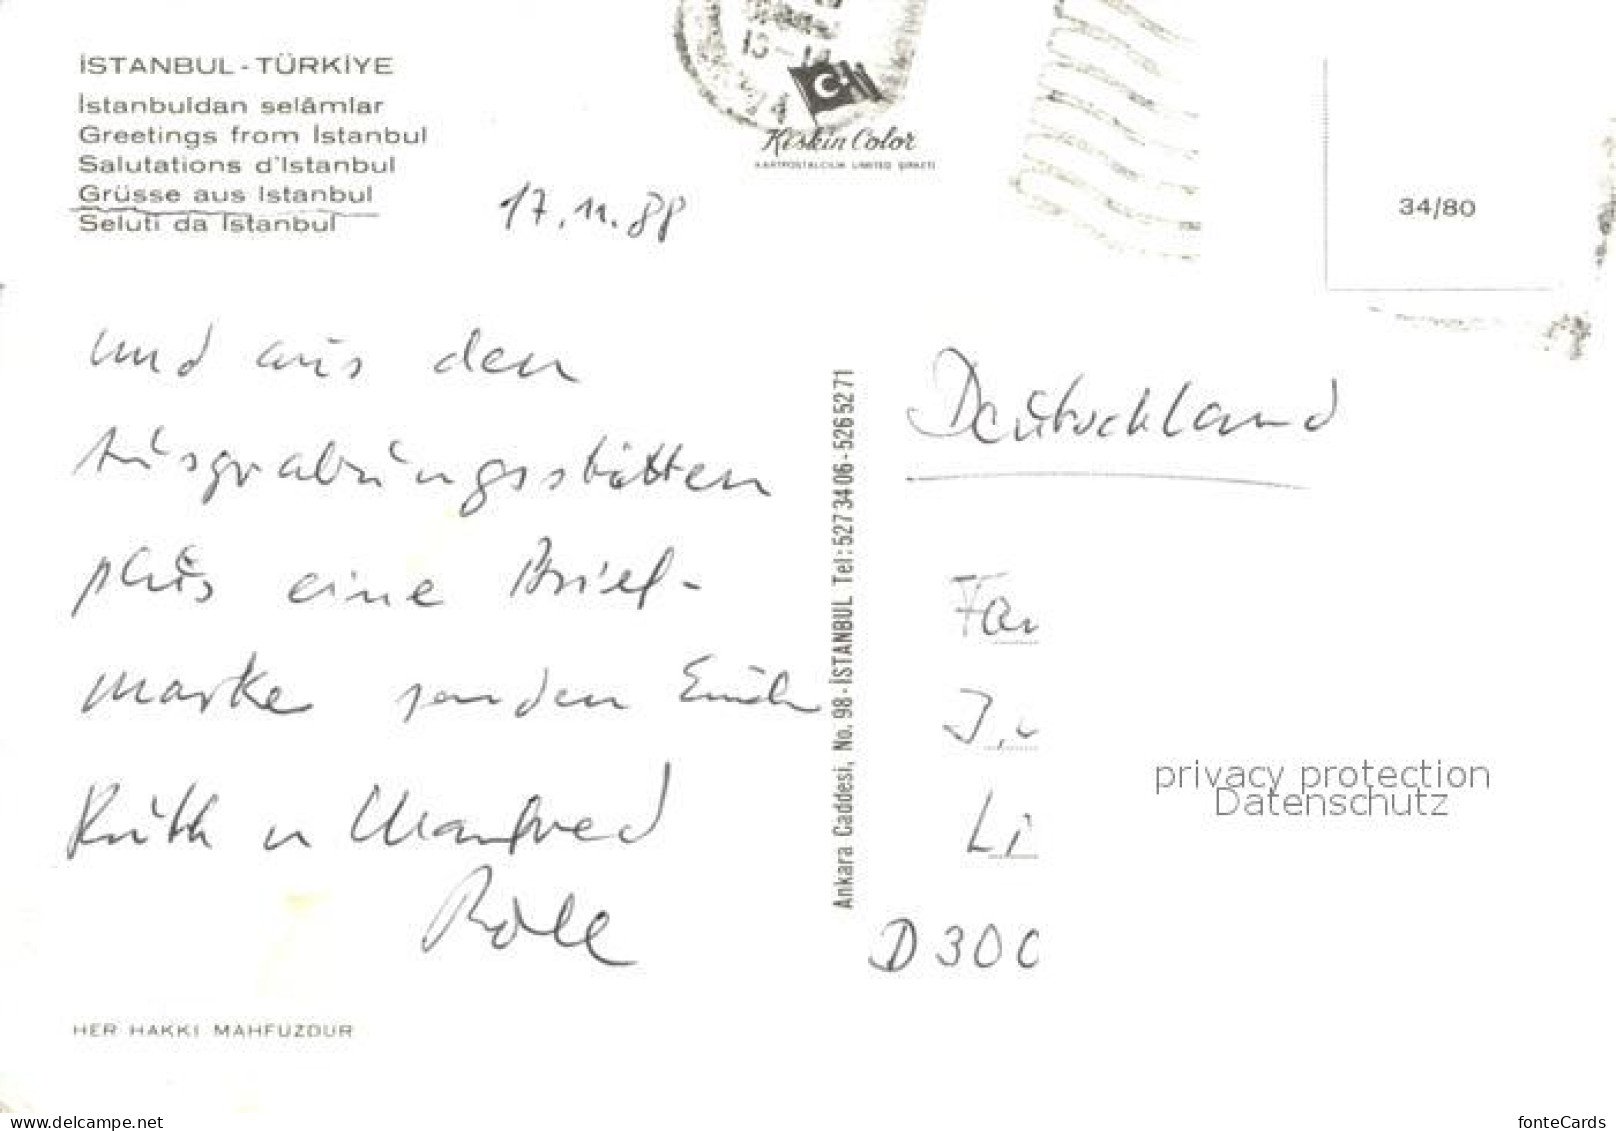 İSTANBUL - TÜRKİYE
İstanbuldan selâmlar
Greetings from İstanbul
Salutations d'Istanbul
Grüsse aus Istanbul
Seluti da Istanbul
17.11.88
und aus den
Ausgrabungsstätten
plus eine Brief-
marke senden Euch
Ruth u Manfred
HER HAKKI MAHFUZDUR
13-14
Keskin Color
KARTPOSTALCILIK LIMITED ŞİRKETİ
Ankara Caddesi, No. 98 - İSTANBUL Tel: 527 34 06 - 526 52 71
34/80
Deutschland
Fa
J.
Li
D 300
privacy protection
Datenschutz
www.delcampe.net
fonteCards